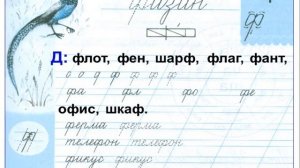 физин
Д: флот, фен, шарф, флаг, фант,
о о д ф ф ф ф
фа фл фо фе
офис, шкаф.
ферма ферма
телефон телефон
фикус фикус
ф
ф